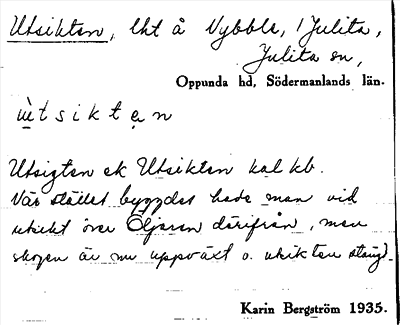 Utsikten, lht å Vybble, i Julita,
Julita sn,
Oppunda hd, Södermanlands län.
ù̀tsiktẹn
Utsigten ek Utsikten kal kb.
När stället byggdes hade man vid
utsikt över Öljaren därifrån, men
skogen är nu uppväxt o. utsikten stängd.
Karin Bergström 1935.